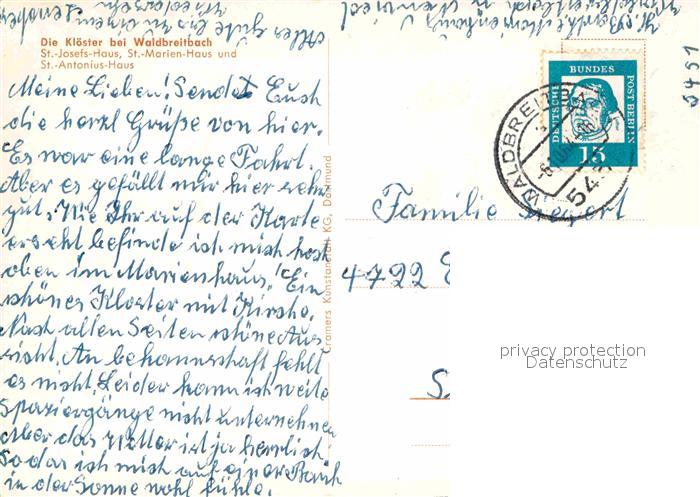 Die Klöster bei Waldbreitbach
St.-Josefs-Haus, St.-Marien-Haus und
St.-Antonius-Haus
Meine Lieben! Sendet Euch
die herzl Grüße von hier.
Es war eine lange Fahrt.
Aber es gefällt mir hier sehr
gut. Wie Ihr auf der Karte
erseht befinde ich mich
oben im Marienhaus. Ein
schönes Kloster mit Kirche.
Nach allen Seiten schöne Aus
sicht. An bekannschaft fehlt
es nicht. Leider kann ich weite
Spaziergänge nicht unternehmen
Aber das Wetter ist ja herrlich
So das ich mich auf einer Bank
in der Sonne wohl fühle.
Alles gute bis zu
Wiedersehen
Cramers Kunstanstalt KG, Dortmund
DEUTSCHE BUNDES POST BERLIN
15
WALDBREITB
545
5451
Familie
4722
privacy protection
Datenschutz